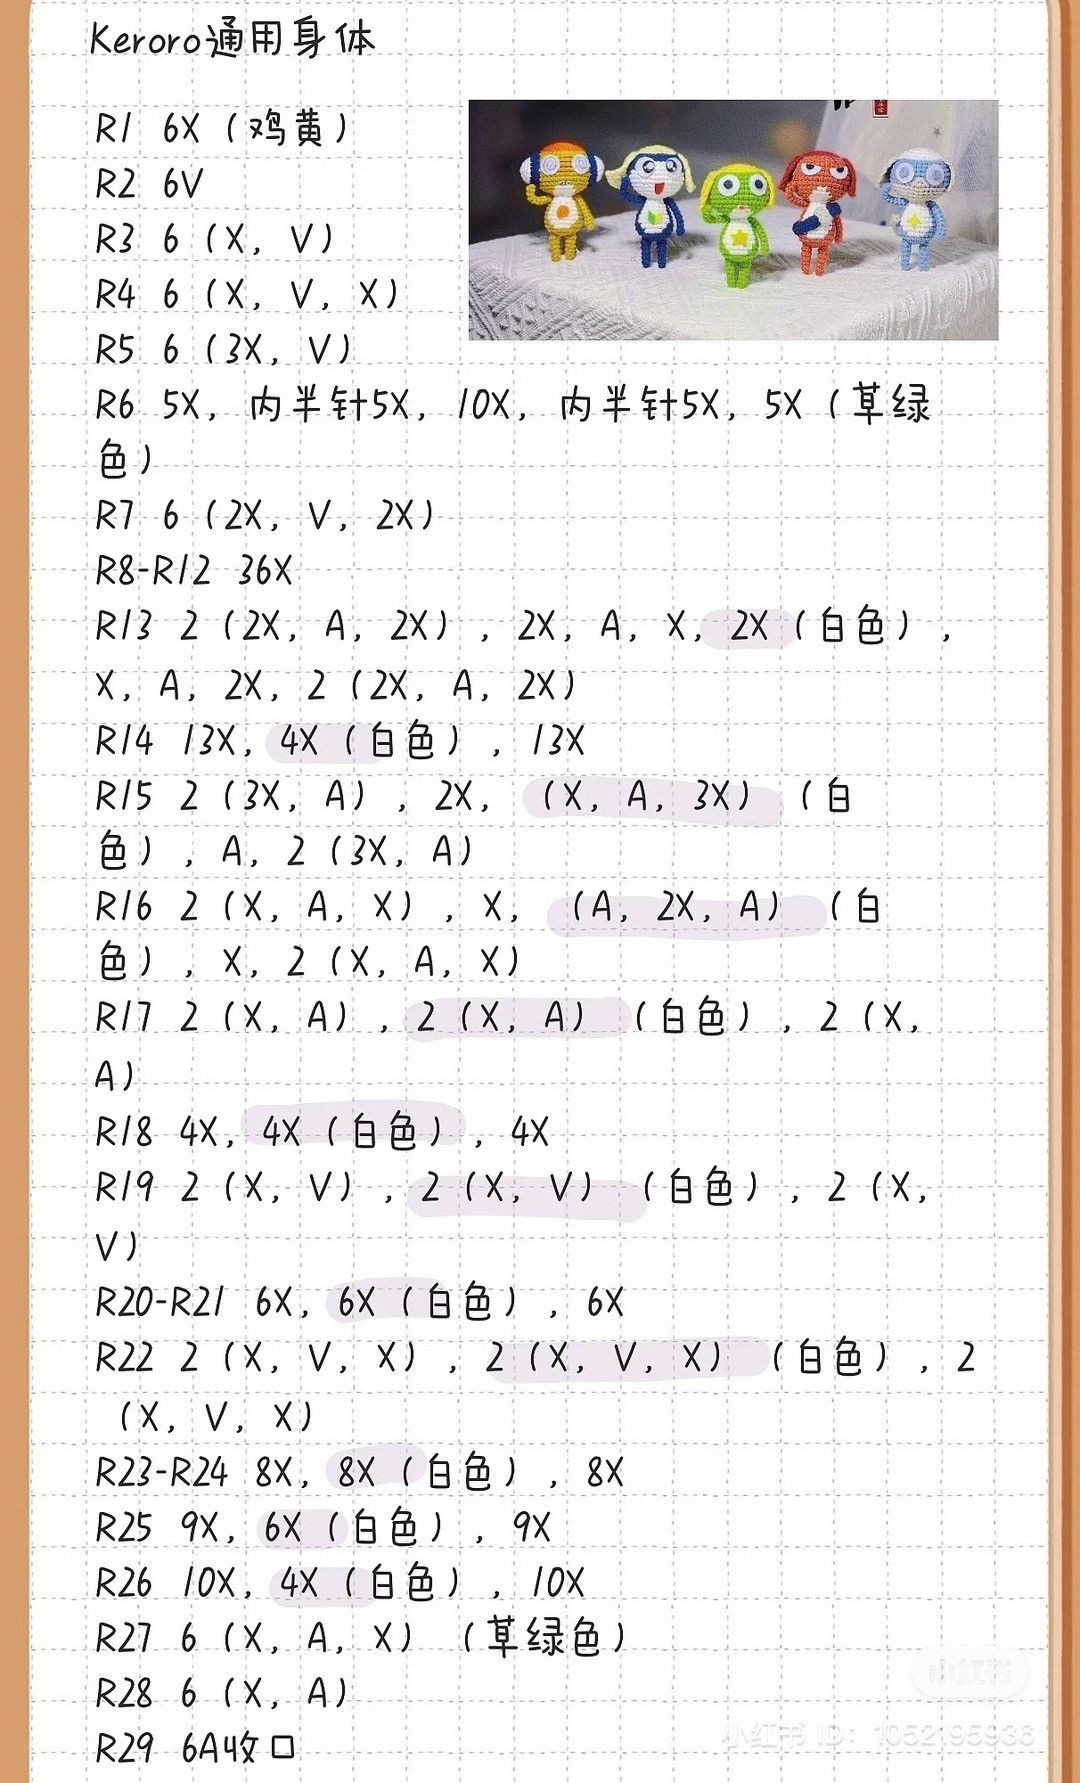 Keroro通用身体
R1 6X（鸡黄）
R2 6V
R3 6（X，V）
R4 6（X，V，X）
R5 6（3X，V）
R6 5X，内半针5X，10X，内半针5X，5X（草绿
色）
R7 6（2X，V，2X）
R8-R12 36X
R13 2（2X，A，2X），2X，A，X，2X（白色），
X，A，2X，2（2X，A，2X）
R14 13X，4X（白色），13X
R15 2（3X，A），2X，（X，A，3X）（白
色），A，2（3X，A）
R16 2（X，A，X），X，（A，2X，A）（白
色），X，2（X，A，X）
R17 2（X，A），2（X，A）（白色），2（X，
A）
R18 4X，4X（白色），4X
R19 2（X，V），2（X，V）（白色），2（X，
V）
R20-R21 6X，6X（白色），6X
R22 2（X，V，X），2（X，V，X）（白色），2
（X，V，X）
R23-R24 8X，8X（白色），8X
R25 9X，6X（白色），9X
R26 10X，4X（白色），10X
R27 6（X，A，X）（草绿色）
R28 6（X，A）
R29 6A收口
小红书
小红书 ID：1052195936